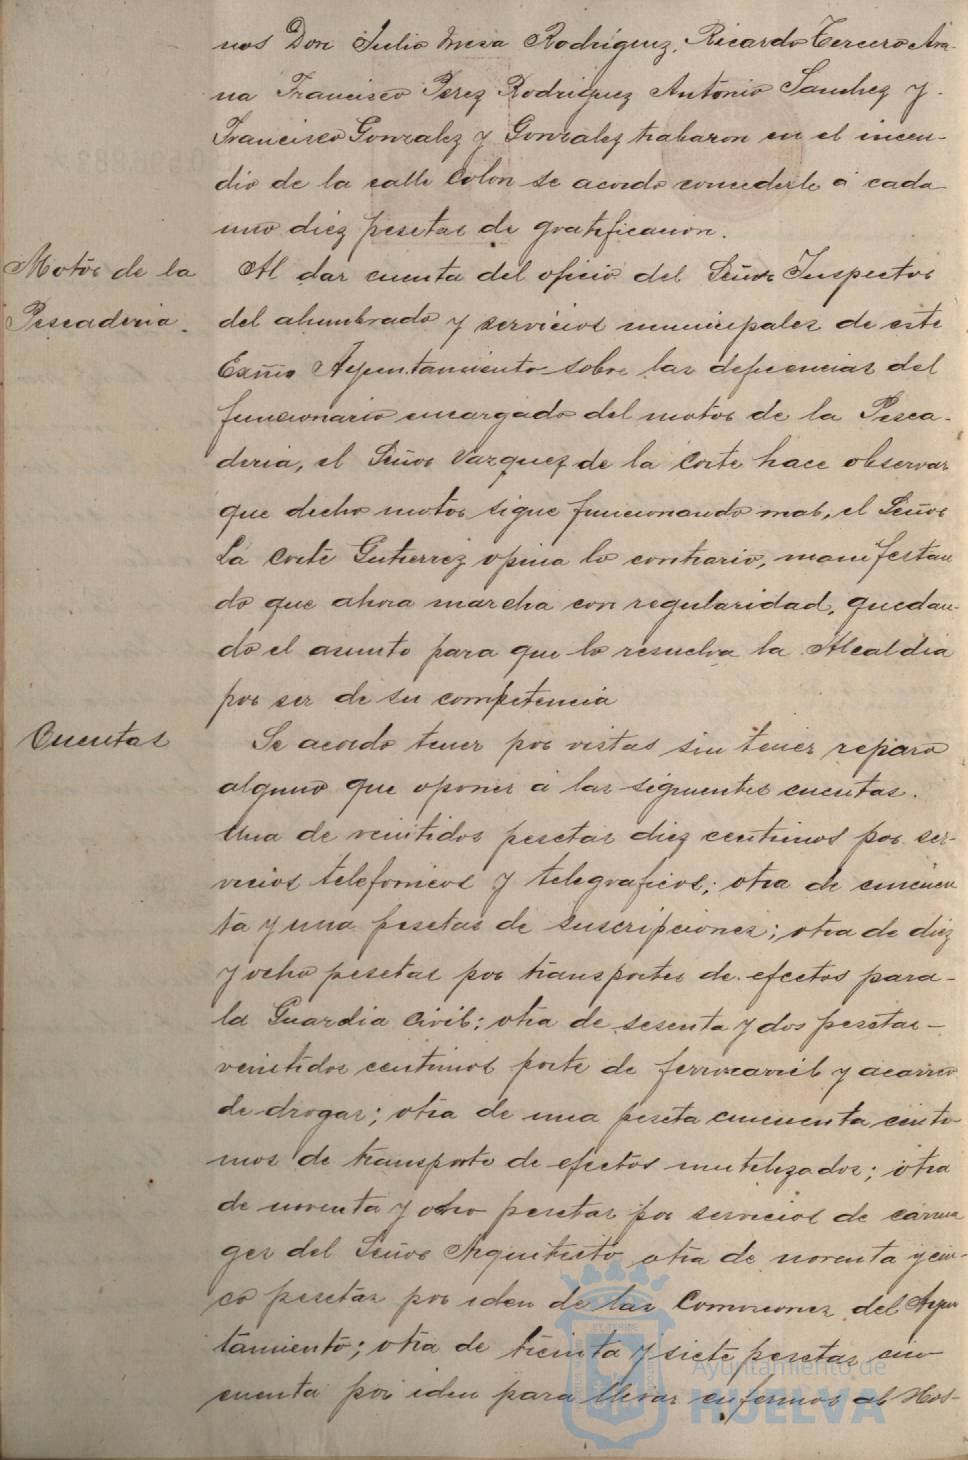 nos Don Julio Mesa Rodriguez, Ricardo Tercero Ara-
na Francisco Perez Rodriguez Antonio Sanchez y
Francisco Gonzalez y Gonzalez trabaron en el incen-
dio de la calle Colon se acordo concederle á cada
uno diez pesetas de gratificacion.
Motor de la
Pescaderia.
Al dar cuenta del oficio del Señor Inspector
del alumbrado y servicios municipales de este
Exmo Ayuntamiento sobre las defiencias del
funcionario encargado del motor de la Pesca-
deria, el Señor Vazquez de la Corte hace observar
que decho motor sigue funcionando mal, el Señor
La Corte Gutierrez opina lo contrario, manifestan
do que ahora marcha con regularidad, quedan-
do el asunto para que lo resuelva la Alcaldia
por ser de su competencia
Cuentas
Se acordo tener por vistas sin tener reparo
alguno que oponer á las siguientes cuentas.
Una de veintidos pesetas diez centimos por ser-
vicios telefonicos y telegraficos; otra de cincuen
ta y una pesetas de suscripciones; otra de diez
y ocho pesetas por transportes de efectos para-
la Guardia Civil; otra de sesenta y dos pesetas-
veintidos centimos porte de ferrocarril y acarreo
de drogas; otra de una peseta cincuenta centi
mos de transporte de efectos mutilizados; otra
de noventa y ocho pesetas por servicios de carrua
ges del Señor Arquitecto, otra de noventa y cin-
co pesetas por iden de las Comisiones del Ayun
tamiento; otra de treinta y siete pesetas cin
cuenta por iden para llevar enfermos al Hos-
Ayuntamiento de
HUELVA